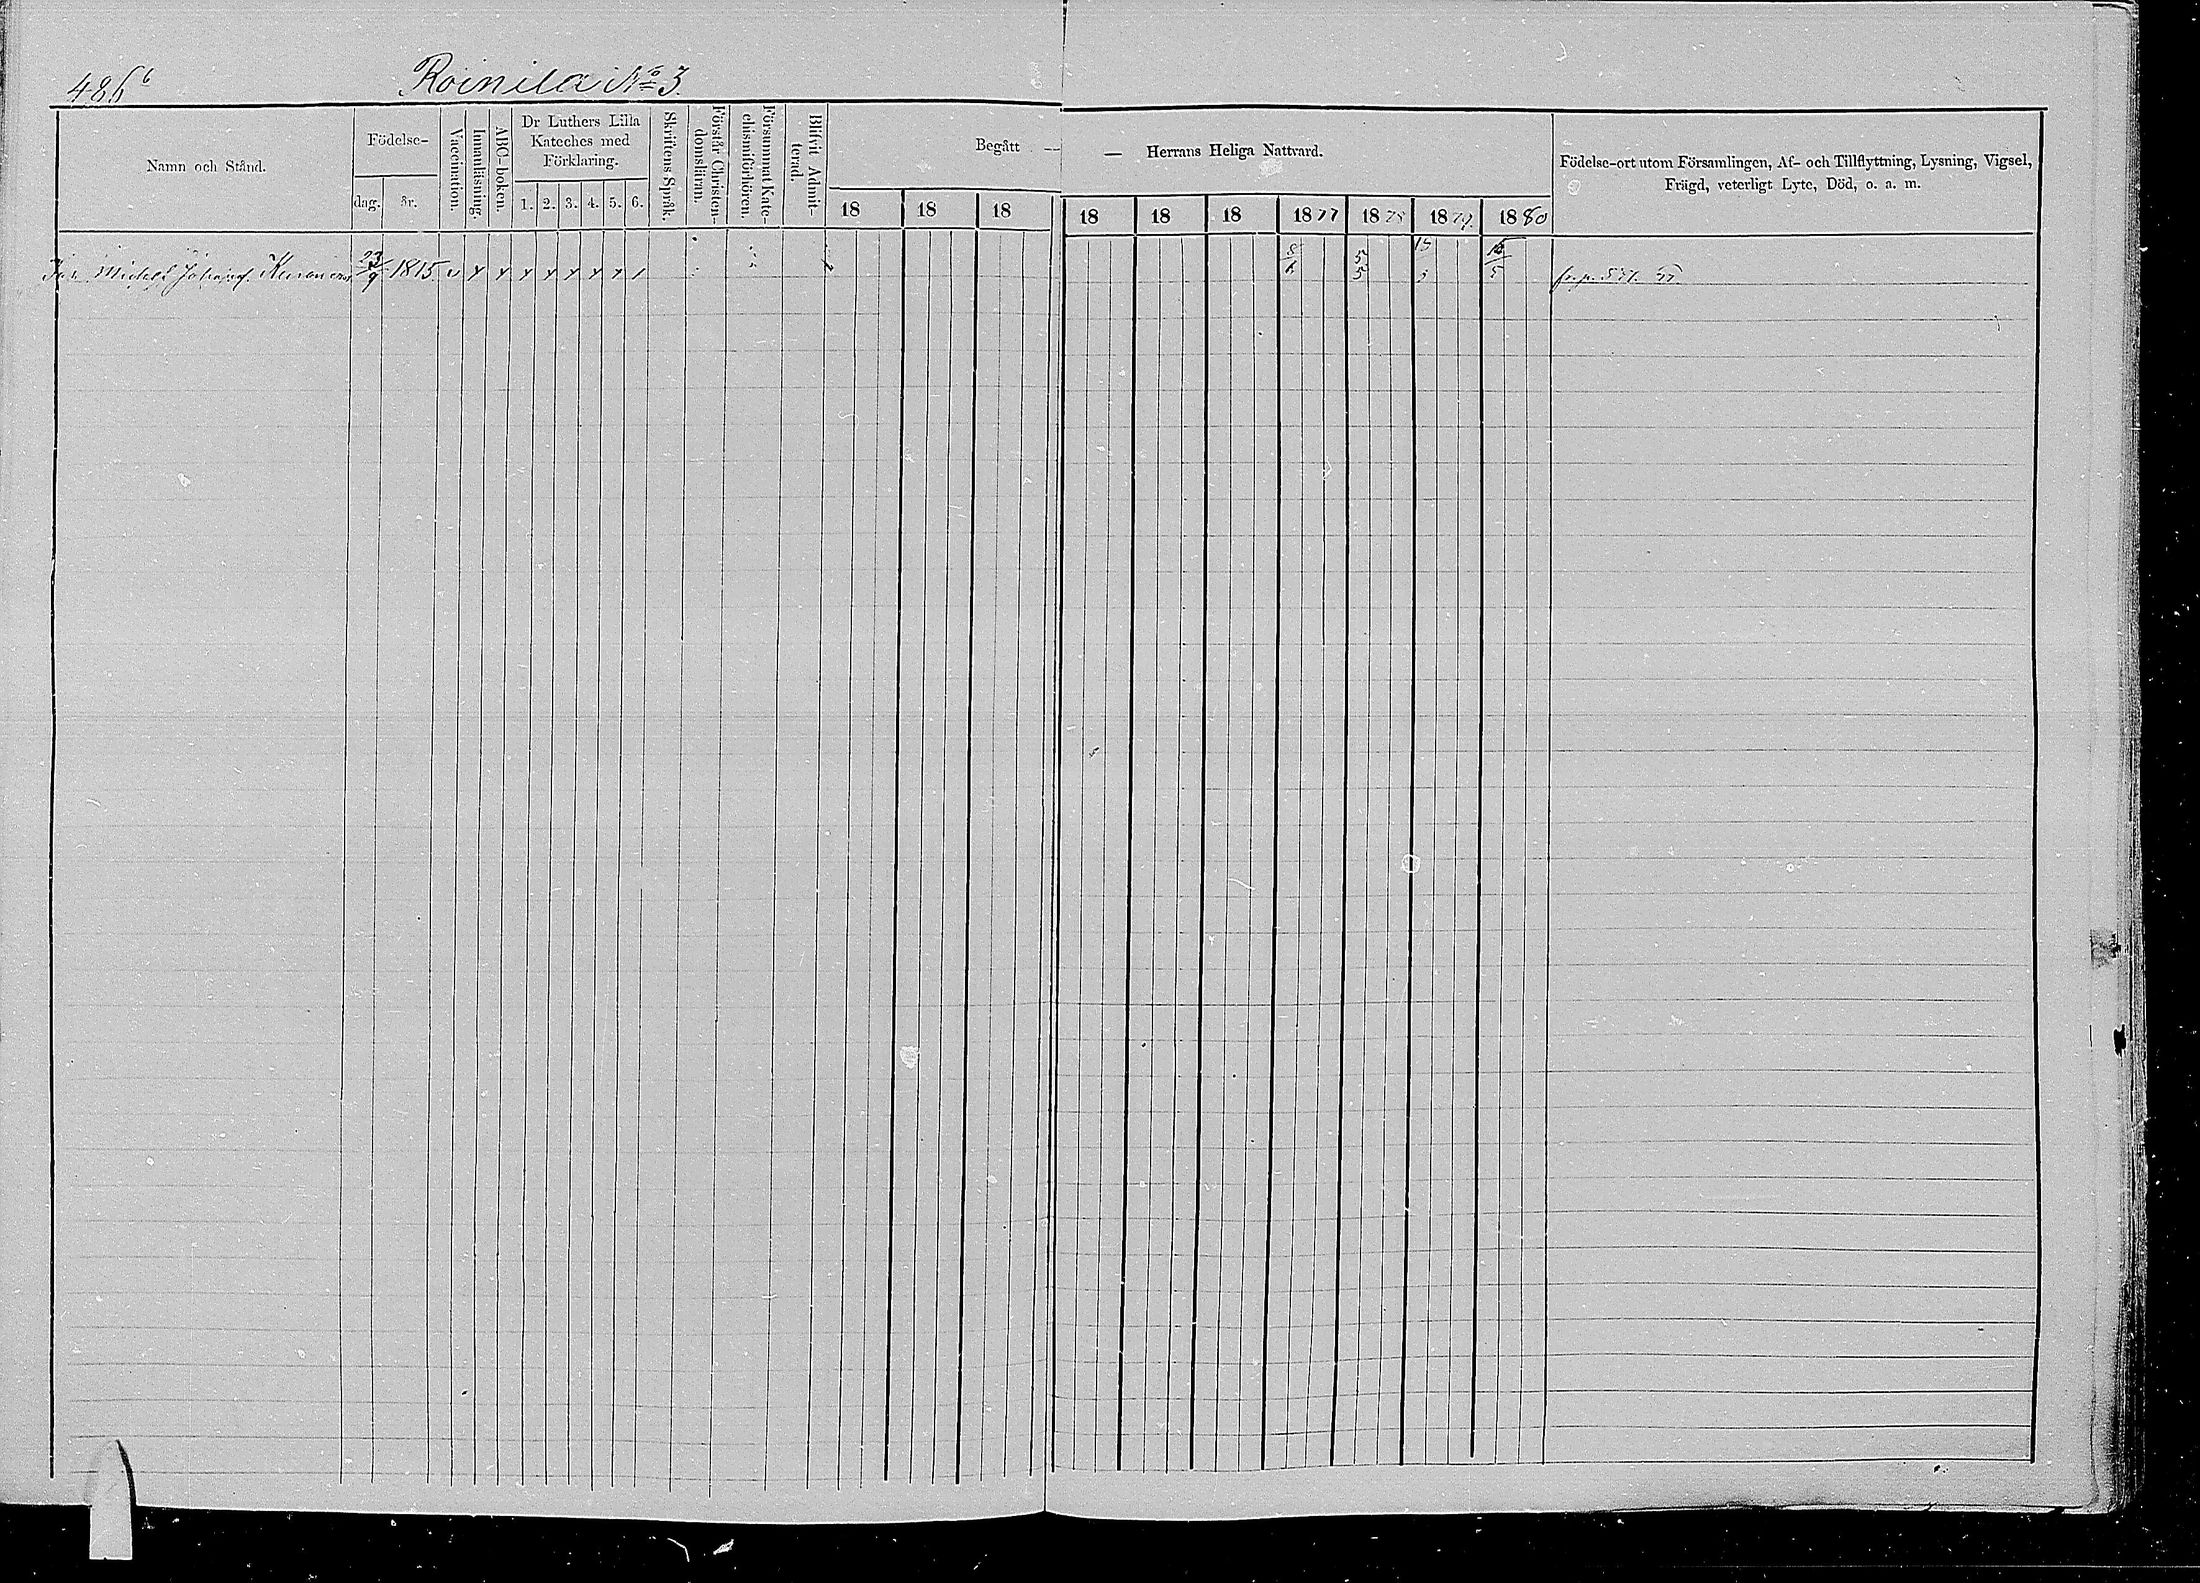 486 b
Roinila No 3.
Namn och Stånd.
Födelse-
dag.
år.
Vaccination.
Innanläsning.
ABC-boken.
Dr Luthers Lilla
Kateches med
Förklaring.
1. 2. 3. 4. 5. 6.
Skriftens Språk.
Förstår Christen-
domsläran.
Försummat Kate-
chismiförhören.
Blifvit Admit-
terad.
Begått —
— Herrans Heliga Nattvard.
18 18 18 18 18 18 1877 1878 1879. 1880
Födelse-ort utom Församlingen, Af- och Tillflyttning, Lysning, Vigsel,
Frägd, veterligt Lyte, Död, o. a. m.
Michel Johansf. 23/9 1815 v x x x x x x x 8/6 5/5 15 5